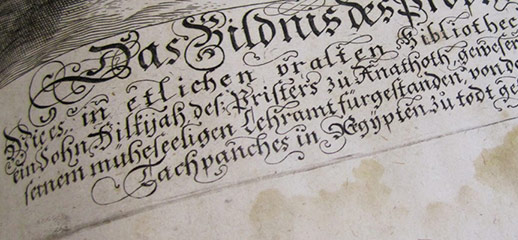 Das Bildnis des Prop
Wies in etlichen vralten Bibliothec
ein Sohn Hilkijah des Pristers zu Anathoth gewesen
seinem müheseeligen Lehramt fürgestanden, von de
Tachpanches in Ægÿpten zu todt ge